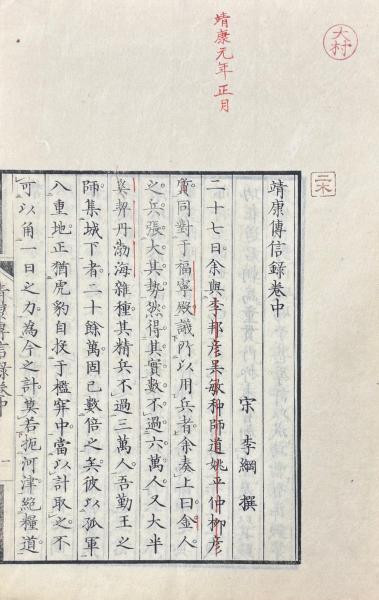 大村
靖康元年正月
靖康傳信錄卷中
宋 李綱 撰
二十七日余與李邦彥吳敏种師道姚平仲柳彥
質同對于福寧殿議所以用兵者余奏上曰金人
之兵張大其勢然得其實數不過六萬人又大半
奚契丹渤海雜種其精兵不過三萬人吾勤王之
師集城下者二十餘萬固已數倍之矣彼以孤軍
入重地正猶虎豹自投于檻穽中當以計取之不
可以角一日之力為今之計莫若扼河津絕糧道